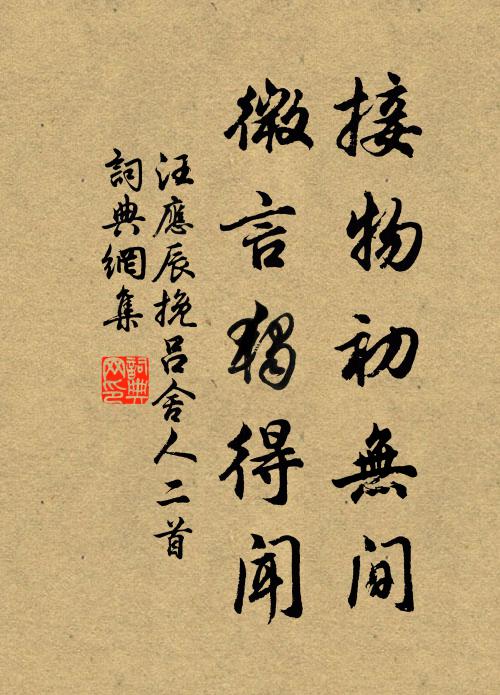 接物初無間
微言獨得聞
汪應辰挽呂舍人二首
詞典網集
詞典
网印